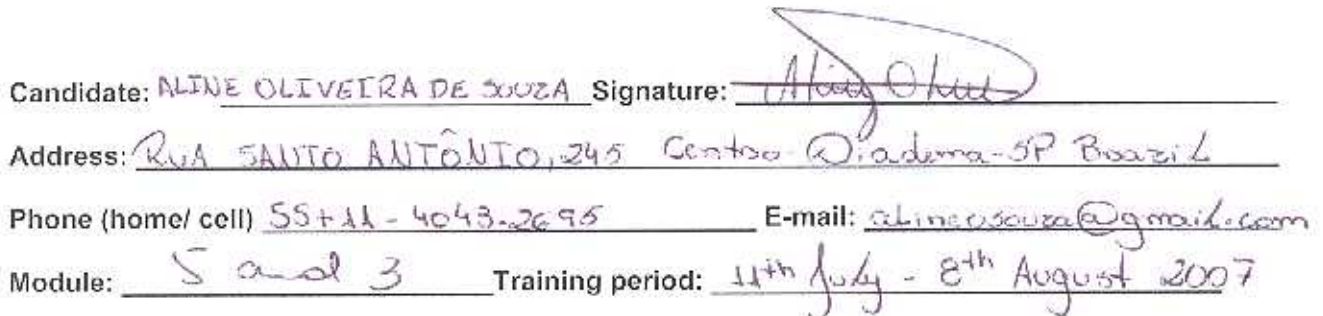 Candidate: ALINE OLIVEIRA DE SOUZA Signature: Aline Olivei
Address: RUA SANTO ANTÔNIO, 245 Centro - Diadema - SP Brazil
Phone (home/ cell) 55+11 - 4043-2695 E-mail: alineosouza@gmail.com
Module: 5 and 3 Training period: 11th July - 8th August 2007